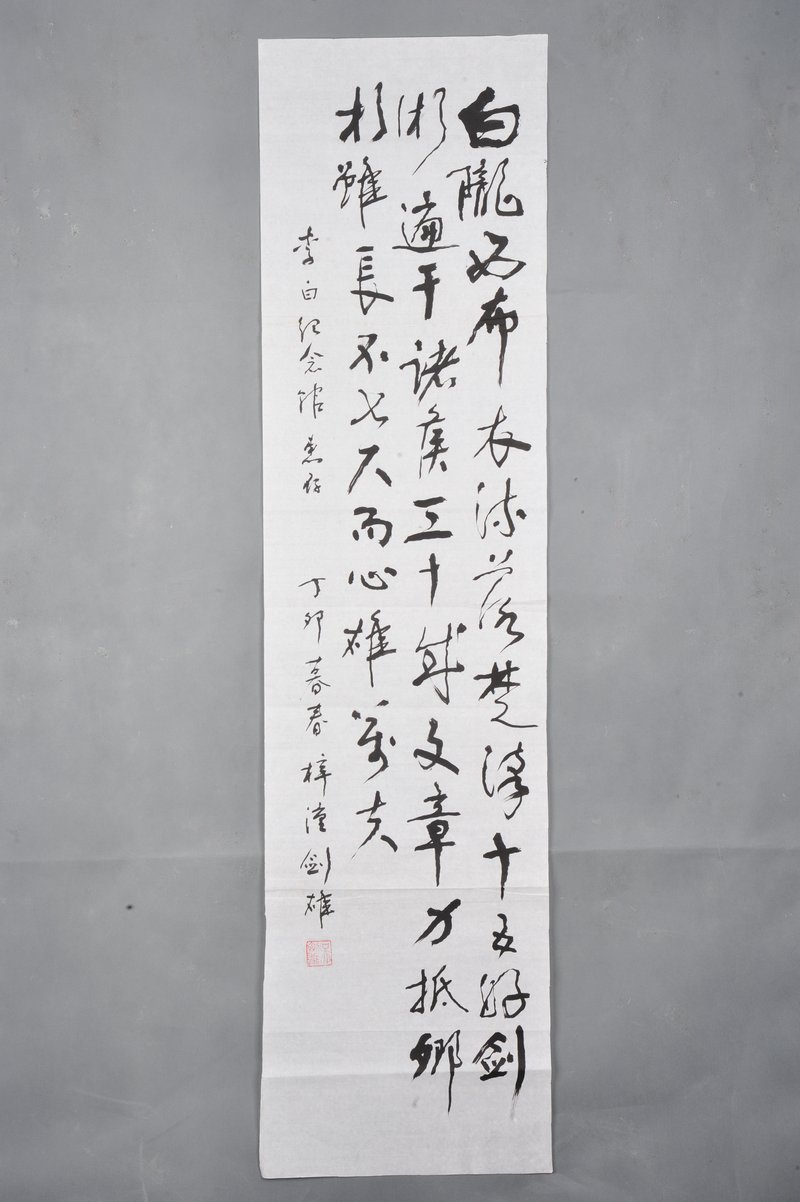 白隴西布衣流落楚漢十五好剑
術遍干諸侯三十成文章力抵卿
相雖長不七尺而心雄萬夫
李白纪念馆惠存 丁卯暮春梓潼剑雄